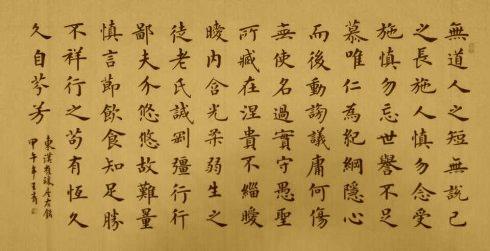 無道人之短無說己
之長施人慎勿念受
施慎勿忘世譽不足
慕唯仁為紀綱隱心
而後動謗議庸何傷
無使名過實守愚聖
所臧在涅貴不緇曖
曖內含光柔弱生之
徒老氏誡剛彊行行
鄙夫介悠悠故難量
慎言節飲食知足勝
不祥行之苟有恆久
久自芬芳
東漢崔瑗座右銘
甲午年王